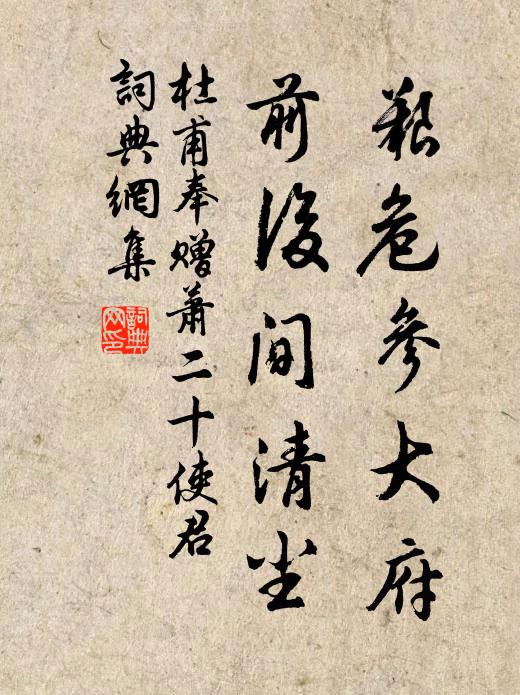 艱危參大府
前後間清塵
杜甫奉贈蕭二十使君
詞典網集
詞典
网印